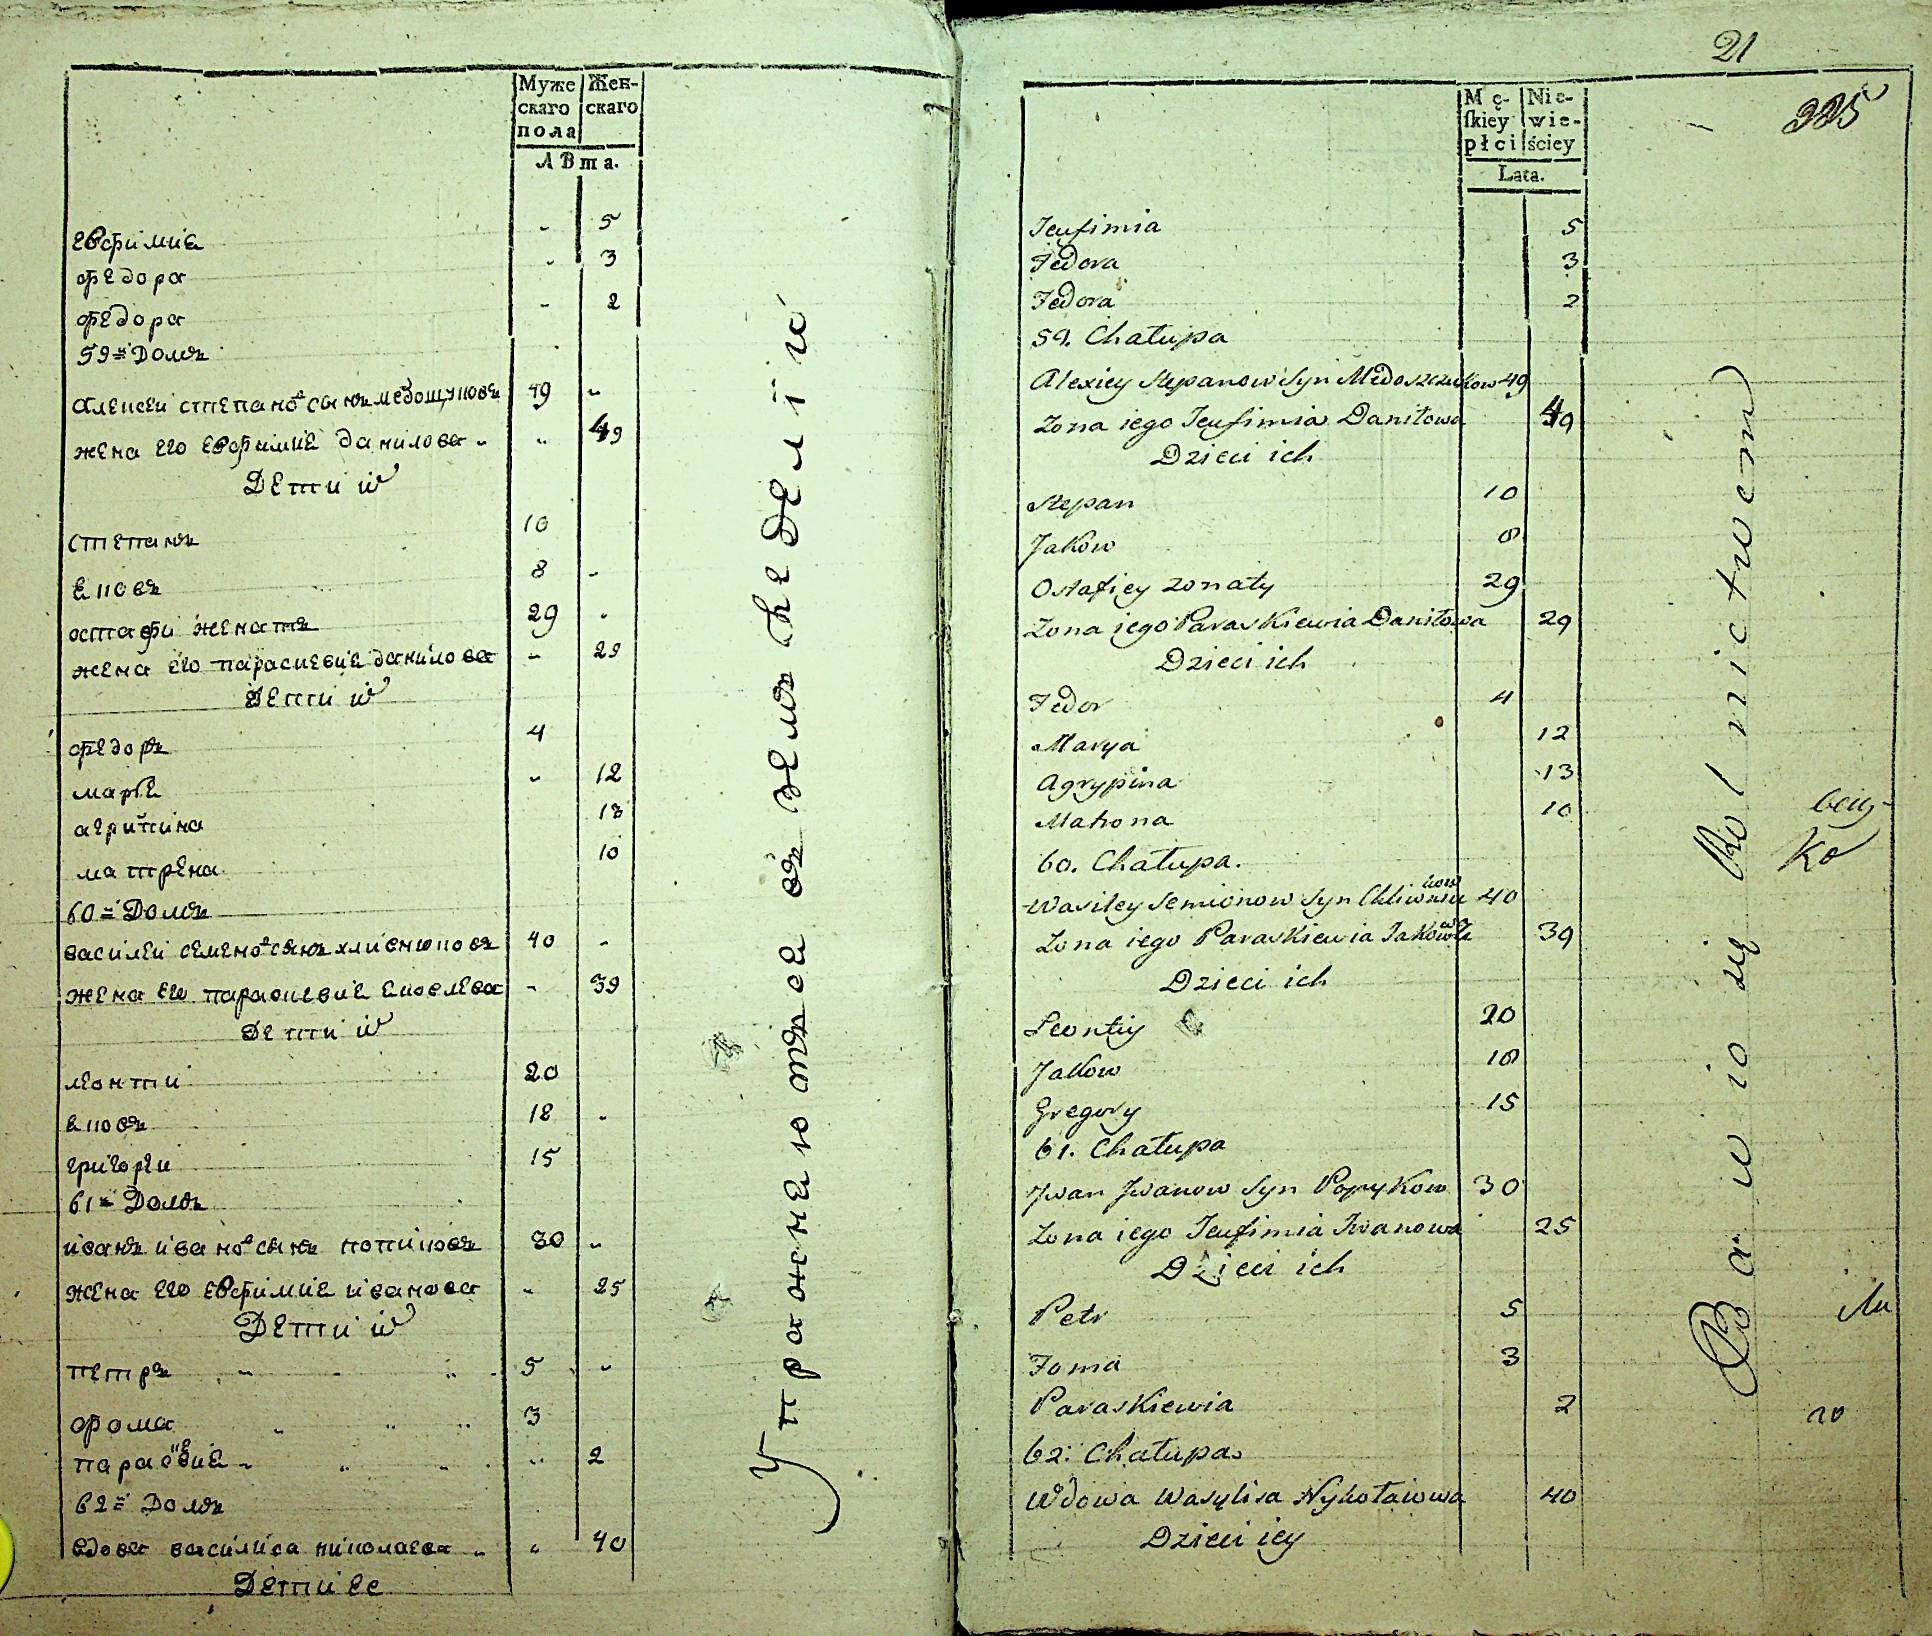 Муже Жен-
скаго скаго
пола
Лѣта.
евфимиѧ " 5
федора " 3
федора " 2
59= Домъ
алексеи степано сынъ медощуковъ 49 "
жена его евфимиѧ данилова " " 49
Дети и
степанъ 10
ꙗковъ 8 "
остафи женатъ 29 "
жена его параскевиꙗ данилова " 29
Дети и
федоръ 4
марьꙗ " 12
агрипина 13
матрена 10
60= Домъ
василеи семено сынъ хливнюковъ 40 "
жена его параскевиꙗ ꙗковлева " 39
Дети и
леонти 20
ꙗковъ 18 "
григореи 15
61= Домъ
иванъ ивано сынъ попиковъ 30 "
жена его евфимиꙗ иванова " 25
Дети и
петръ 5 "
фома 3
параскевиꙗ " 2
62= Домъ
вдова василиса николаева " " 40
Дети ее
Упражнѧютъсѧ въ земъледелiи
21
Mę- Nie-
ſkiey wie-
płci ściey
Lata.
325
Jeufimia 5
Fedora 3
Fedora 2
59. Chałupa
Alexiey Stepanow Syn Medoszczukow 49
Zona iego Jeufimia Daniłowa 49
Dzieci ich
Stepan 10
Jakow 8
Ostafiey zonaty 29
Zona iego Paraskiewia Daniłowa 29
Dzieci ich
Fedor 4
Marya 12
Agrypina 13
Matrona 10
60. Chałupa.
Wasiley Semionow Syn Chliwniukow 40
Zona iego Paraskiewia Jakowla 39
Dzieci ich
Leontiy 20
Jakow 18
Gregory 15
61. Chałupa
Jwan Jwanow Syn Popykow 30
Zona iego Jeufimia Iwanowa 25
Dzieci ich
Petr 5
Foma 3
Paraskiewia 2
62: Chałupa
Wdowa Wasylisa Nykołaiowa 40
Dzieci iey
Bawio się Rolnictwem
Ko